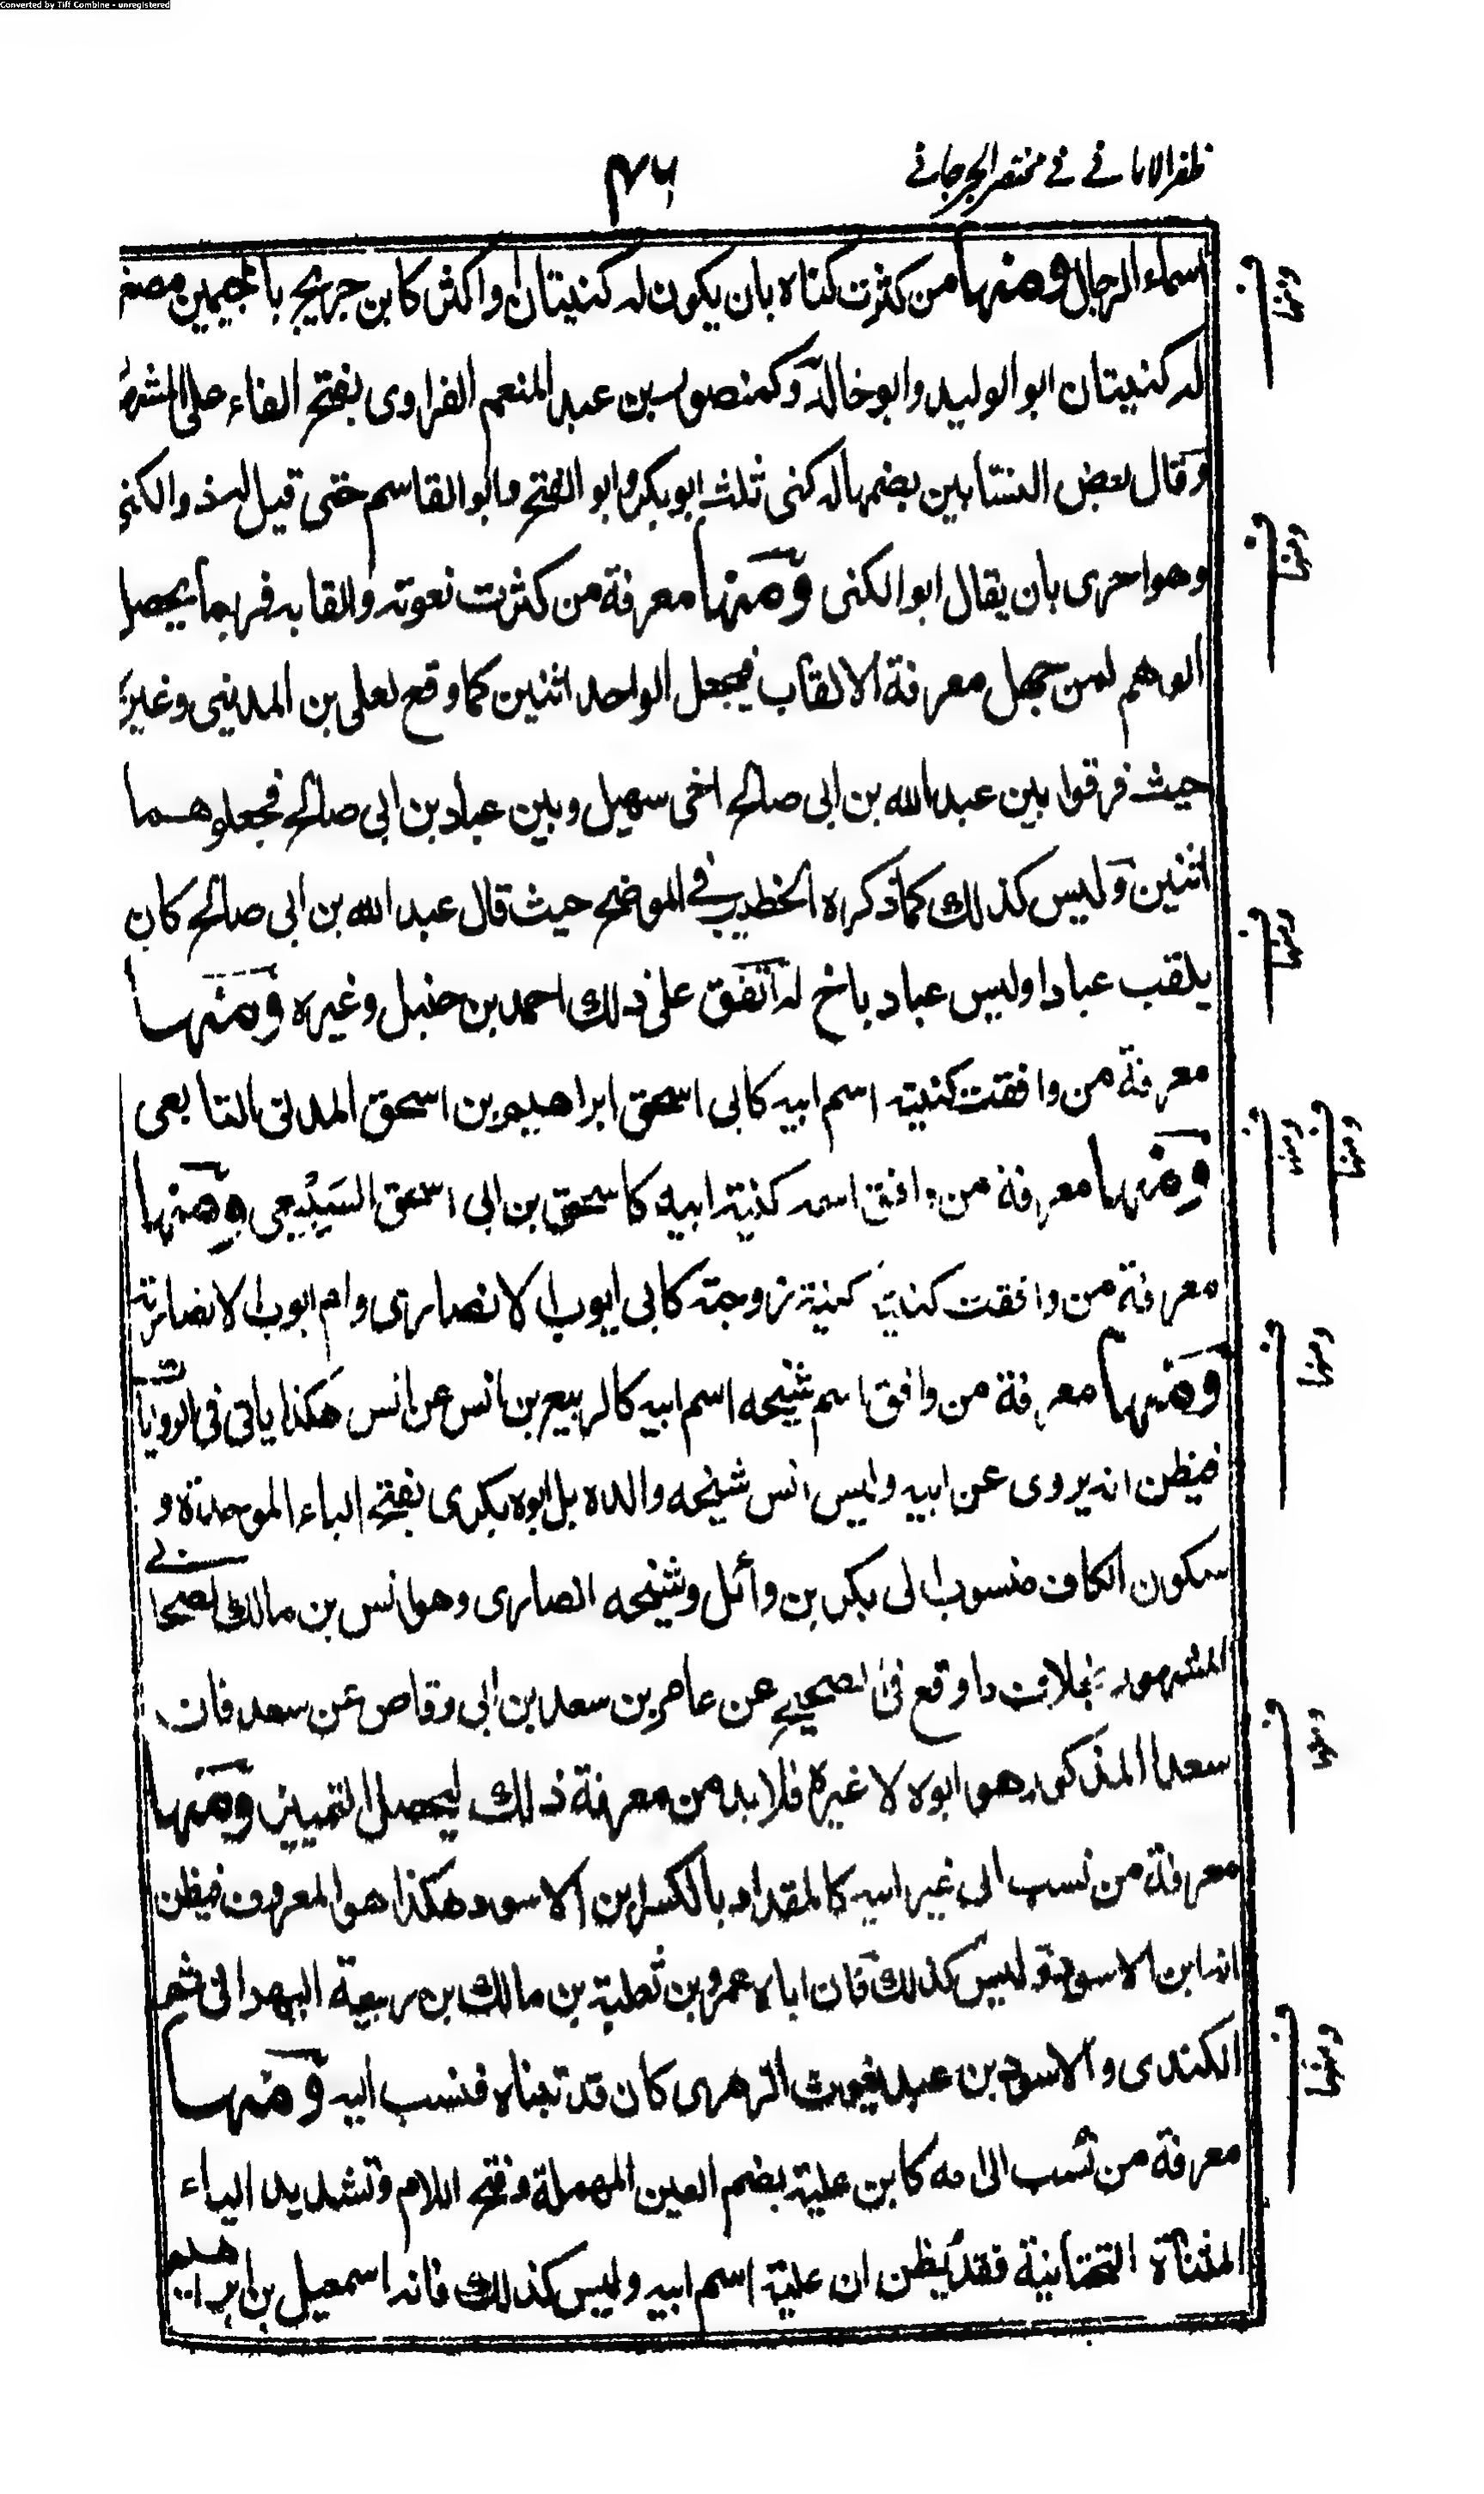 Converted by Tiff Combine - unregistered
ظفر الامانى فى مختصر الجرجانى
اسماء الرجال ومنها من كثرت كناه بان يكون له كنيتان او اكثر كابن جريج بالجيمين مصغر
له كنيتان ابو الوليد وابو خالد وكمنصور بن عبد المنعم الفراوى بفتح الفاء على المشهور
وقال بعض النسّابين بضمها له كنى ثلث ابو بكر وابو الفتح وابو القاسم حتى قيل له ذو الكنى
وهو احرى بان يقال ابو الكنى ومنها معرفة من كثرت نعوته والقابه فربما يحصل
الوهم لمن جهل معرفة الالقاب فيجعل الواحد اثنين كما وقع لعلى بن المدينى وغيره
حيث فرقوا بين عبد الله بن ابى صالح اخى سهيل وبين عباد بن ابى صالح فجعلوهما
اثنين وليس كذلك كما ذكره الخطيب فى الموضح حيث قال عبد الله بن ابى صالح كان
يلقب عبادا وليس عباد باخ له اتفق على ذلك احمد بن حنبل وغيره ومنها
معرفة من وافقت كنيته اسم ابيه كابى اسحق ابراهيم بن اسحق المدنى التابعى
ومنها معرفة من وافق اسمه كنية ابيه كاسحق بن ابى اسحق السَبِيْعى ومنها
معرفة من وافقت كنيته كنية زوجته كابى ايوب الانصارى وام ايوب الانصارية
ومنها معرفة من وافق اسم شيخه اسم ابيه كالربيع بن انس عن انس هكذا ياتى فى الروايات
فيظن انه يروى عن ابيه وليس انس شيخه والده بل ابوه بكرى بفتح الباء الموحدة و
سكون الكاف منسوب الى بكر بن وائل وشيخه انصارى وهو انس بن مالك الصحابى
المشهور بخلاف ما وقع فى الصحيح عن عامر بن سعد بن ابى وقاص عن سعد فان
سعدا المذكور هو ابوه لا غيره فلا بد من معرفة ذلك ليحصل التمييز ومنها
معرفة من نسب الى غير ابيه كالمقداد بالكسر بن الاسود هكذا هو المعروف فيظن
انه ابن الاسود وليس كذلك فان اباه عمرو بن ثعلبة بن مالك بن ربيعة البهرانى ثم
الكندى والاسود بن عبد يغوث الزهرى كان قد تبناه فنسب اليه ومنها
معرفة من نسب الى امه كابن علية بضم العين المهملة وفتح اللام وتشديد الياء
المثناة التحتانية فقد يظن ان علية اسم ابيه وليس كذلك فانه اسمعيل بن ابراهيم